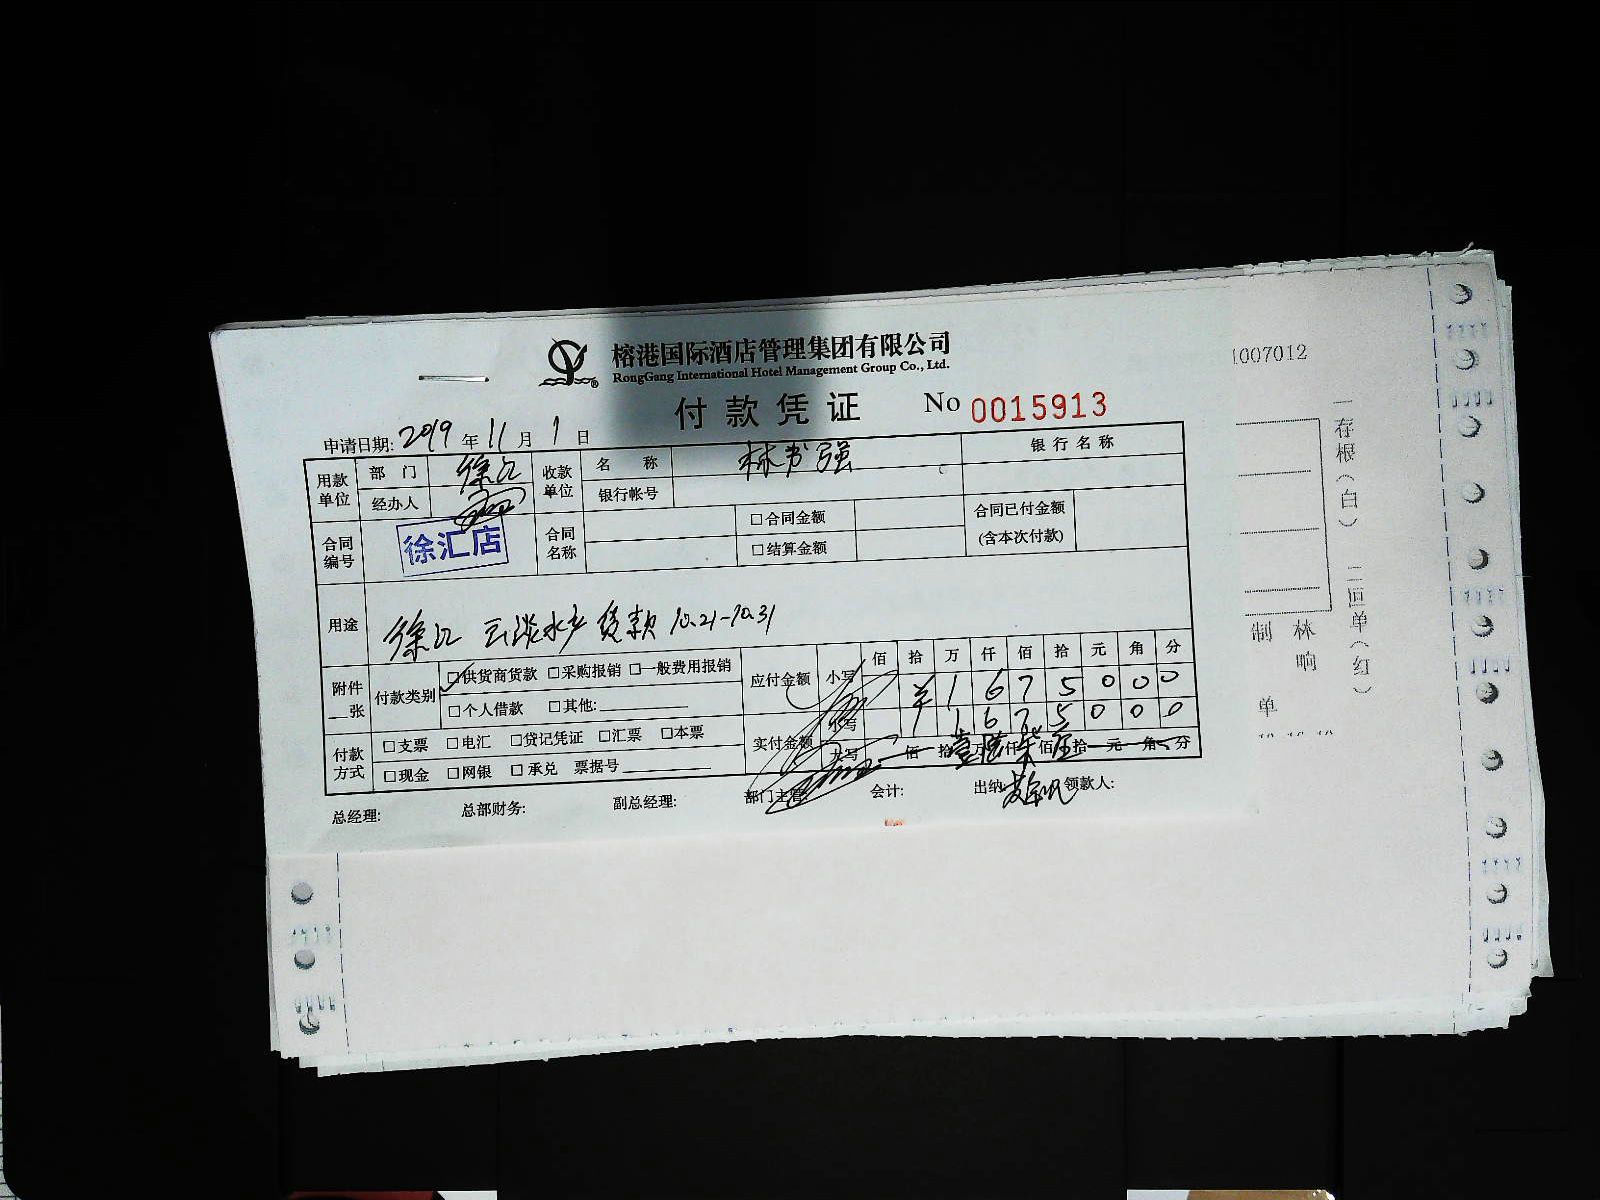 榕港国际酒店管理集团有限公司
RongGang International Hotel Management Group Co., Ltd.
付款凭证 No 0015913
1007012
申请日期: 2019 年 11 月 1 日
用款单位 部门 徐汇 收款单位 名称 林书强 银行名称
经办人 银行帐号
合同编号 徐汇店 合同名称 □合同金额 合同已付金额
□结算金额 (含本次付款)
用途 徐汇 云淡水产货款 10.21-10.31
附件 张 付款类别 □供货商货款 □采购报销 □一般费用报销 应付金额 小写 佰 拾 万 仟 佰 拾 元 角 分
¥ 1 6 7 5 0 0 0
□个人借款 □其他:
付款方式 □支票 □电汇 □贷记凭证 □汇票 □本票 实付金额 小写 1 6 7 5 0 0 0
□现金 □网银 □承兑 票据号 大写 佰 拾壹万陆仟柒佰伍拾 元 角 分
总经理: 总部财务: 副总经理: 部门主管: 会计: 出纳: 领款人:
一存根(白) 二回单(红)
制单
林响